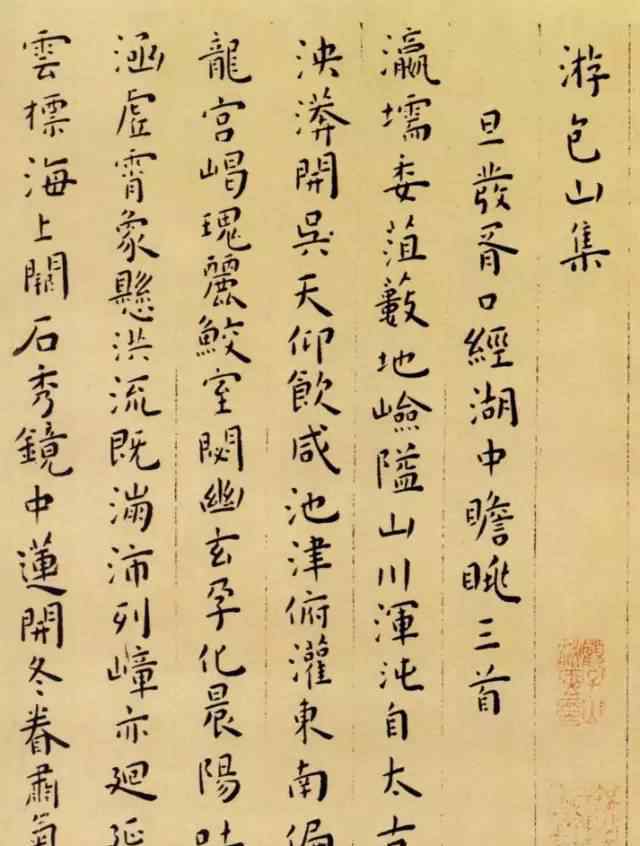 游包山集
旦發胥口經湖中瞻眺三首
瀛壖委菹藪地嶮隘山川渾沌自太古
泱漭開吳天仰飲咸池津俯灌東南偏
龍宮嵑瑰麗鮫室閟幽玄孕化晨陽吐
涵虛霄象懸洪流既滿沛列嶂亦迴延
雲標海上關石秀鏡中蓮開冬眷肅氣